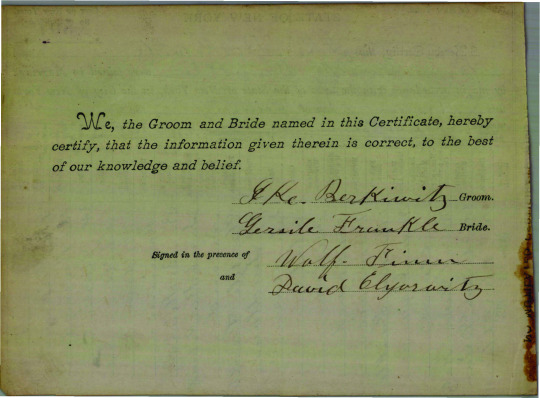 We, the Groom and Bride named in this Certificate, hereby
certify, that the information given therein is correct, to the best
of our knowledge and belief.
Ike. Berkiwitz Groom.
Gersile Frunkle Bride.
Signed in the presence of Wolf. Finn
and David Elyorwitz